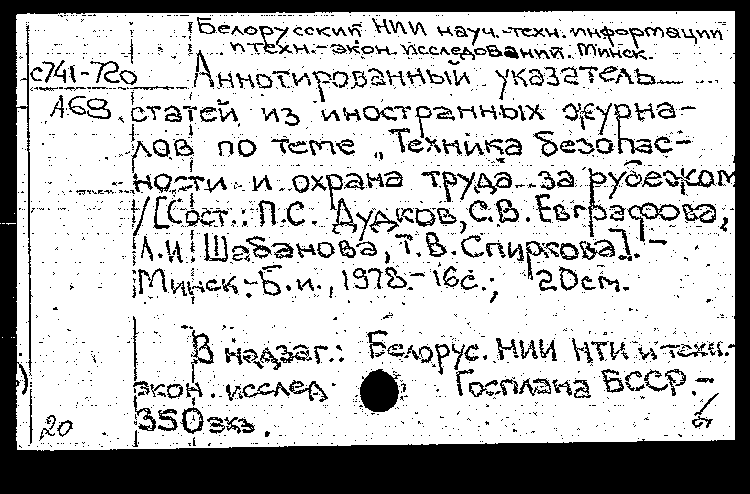 Белорусский НИИ науч.-техн. информации
и техн.-экон. исследований. Минск.
с741-720 Аннотированный указатель
А68. статей из иностранных журна-
лов по теме „Техника безопас-
ности и охрана труда за рубежом
/[Сост.: П.С. Дудков, С.В. Евграфова,
Л.И. Шабанова, Т.В. Спиркова]. -
Минск.-Б.и., 1978.- 16с.; 20см.
В надзаг.: Белорус. НИИ НТИ и техн.-
экон. исслед. Госплана БССР.-
20 350экз.